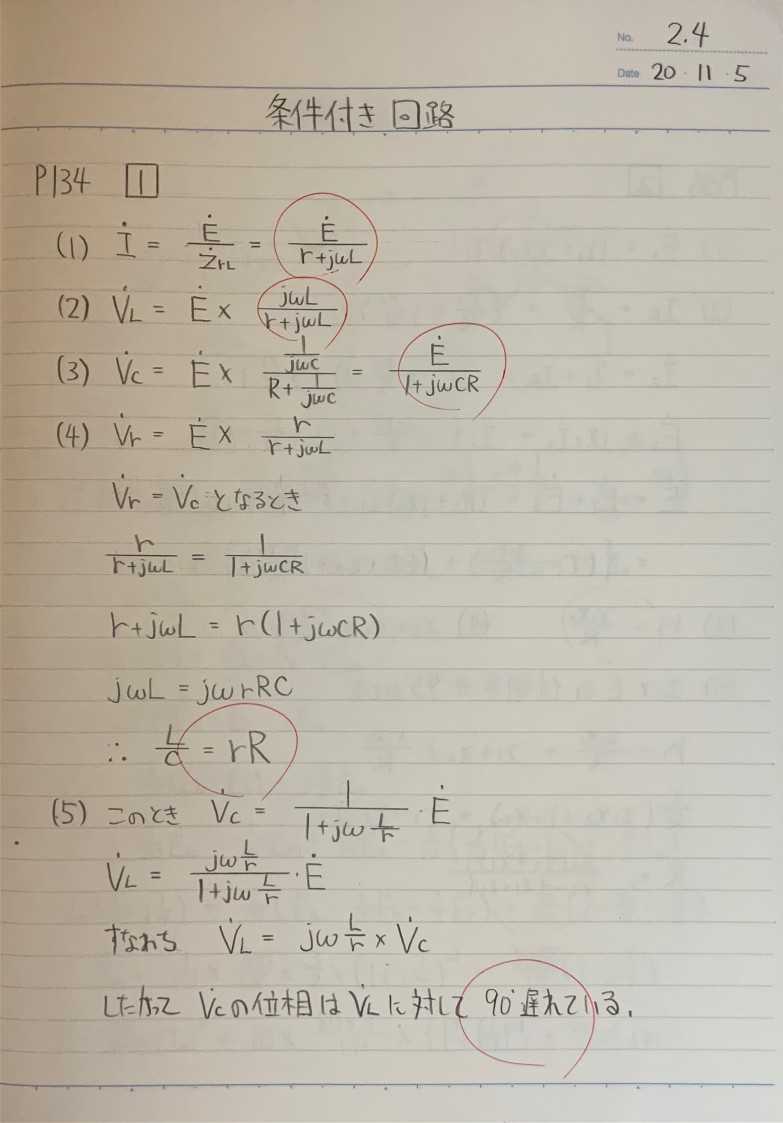 No. 2.4
Date 20・11・5
条件付き回路
P134 1
(1) İ = Ė/Ż_rL = Ė/(r+jωL)
(2) V̇_L = Ė × jωL/(r+jωL)
(3) V̇_C = Ė × (1/jωC)/(R+1/jωC) = Ė/(1+jωCR)
(4) V̇_r = Ė × r/(r+jωL)
V̇_r = V̇_C となるとき
r/(r+jωL) = 1/(1+jωCR)
r+jωL = r(1+jωCR)
jωL = jωrRC
∴ L/C = rR
(5) このとき V̇_C = 1/(1+jω L/r) ・ Ė
V̇_L = (jω L/r)/(1+jω L/r) ・ Ė
すなわち V̇_L = jω L/r × V̇_C
したがって V̇_C の位相は V̇_L に対して 90°遅れている.